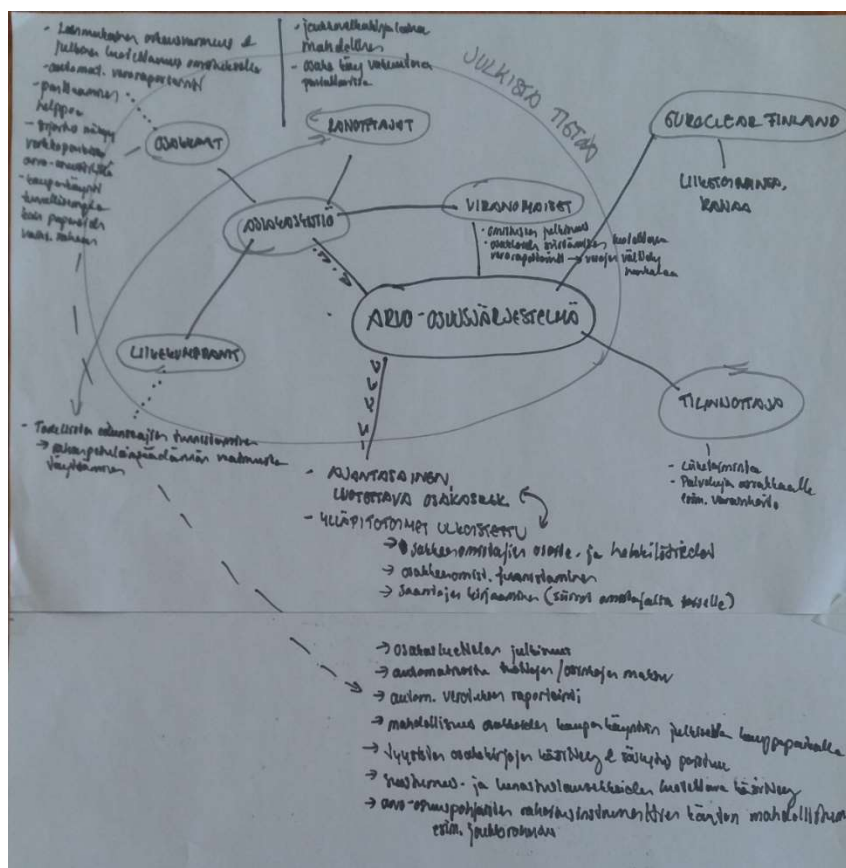 - Lainmukainen oikeusvarmuus &
julkinen luotettavuus omistukselle
- automat. veroraportointi
- panttaaminen
helppoa
- näkyy
verkkopankissa
arvo-osuustilillä
- kaupankäynti
turvallisempaa
kuin paperisen
- joukkovelkakirjalaina
mahdollinen
- osake käy vakuutena
pankeissa
JULKISTA TIETOA
OSAKKAAT
RAHOITTAJAT
EUROCLEAR FINLAND
LIIKETOIMINTA,
RAHAA
OSAKEYHTIÖ
VIRANOMAISET
- omistuksen julkisuus
- osakkeiden siirtämisen luotettava
veroraportointi → verojen välttely
hankalaa
ARVO-OSUUSJÄRJESTELMÄ
LIIKEKUMPPANIT
TILINHOITAJA
- Liiketoiminta
- Palveluja asiakkaalle
esim. varainhoito
- Todellisten edunsaajien tunnistaminen
→ rahanpesulainsäädännön vaatimusten
täyttäminen
- AJANTASAINEN,
LUOTETTAVA OSAKASLUE
- YLLÄPITOTOIMET ULKOISTETTU
→ Osakkeenomistajien osoite- ja henkilötiedot
→ osakkeenomist. tunnistaminen
→ Saantojen kirjaaminen (siirrot omistajalta toiselle)
→ osakasluettelon julkisuus
→ automatisoitu tuottojen/osinkojen maksu
→ autom. verotuksen raportointi
→ mahdollisuus osakkeiden kaupankäyntiin julkisella kauppapaikalla
→ fyysisten osakekirjojen käsittely & säilytys poistuu
→ suostumus- ja lunastuslausekkeiden luotettava käsittely
→ arvo-osuuspohjaisten rahoitusinstrumenttien käytön mahdollistuminen
esim. joukkorahoitus